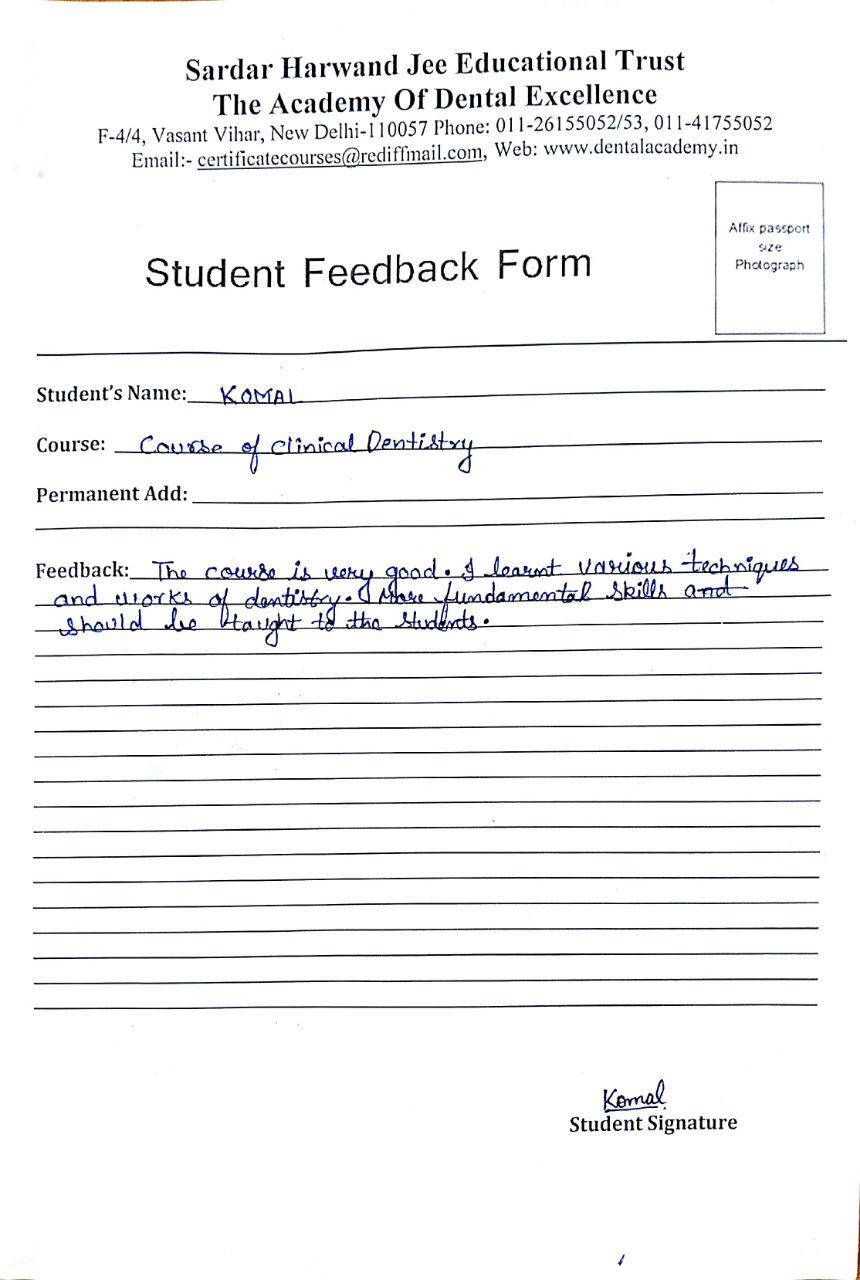 Sardar Harwand Jee Educational Trust
The Academy Of Dental Excellence
F-4/4, Vasant Vihar, New Delhi-110057 Phone: 011-26155052/53, 011-41755052
Email:- certificatecourses@rediffmail.com, Web: www.dentalacademy.in
Affix passport
size
Photograph
Student Feedback Form
Student's Name: KOMAL
Course: Course of Clinical Dentistry
Permanent Add:
Feedback: The course is very good. I learnt various techniques
and works of dentistry. More fundamental skills and
should be taught to the students.
Komal
Student Signature